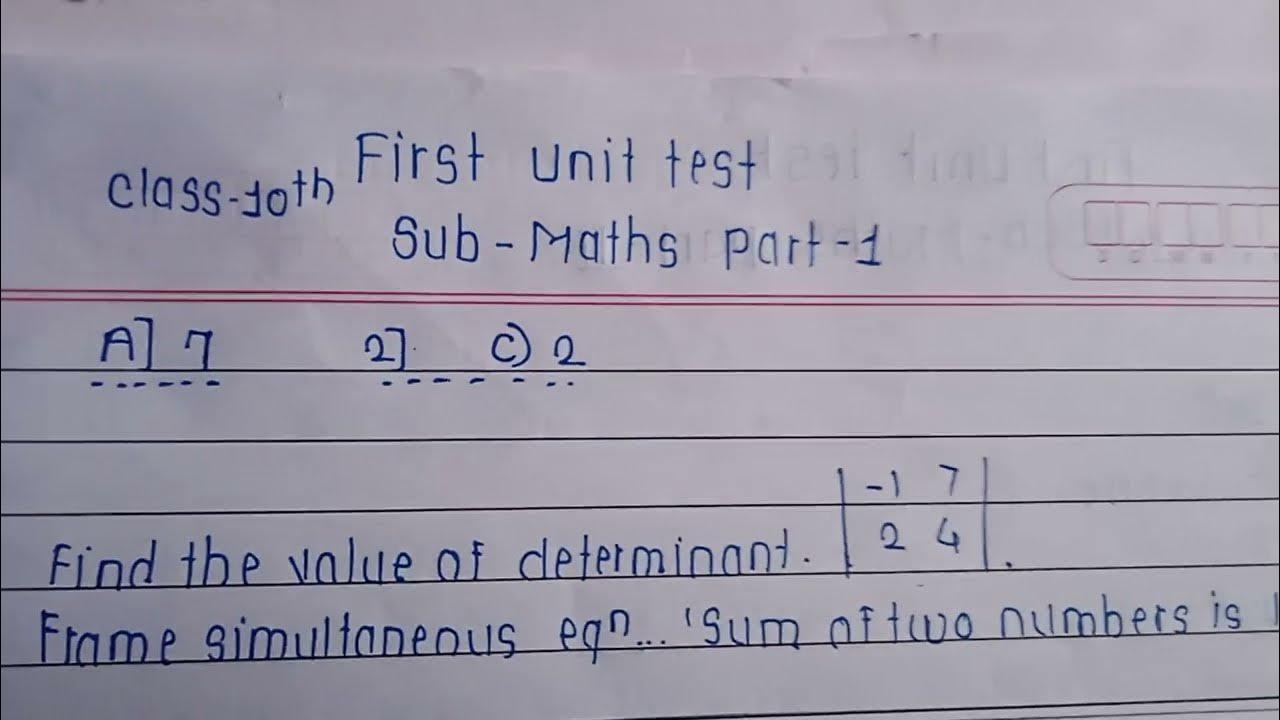 First unit test
Class-10th
Sub-Maths part-1
A] 7 2] C) 2
-1 7
2 4
Find the value of determinant. .
Frame simultaneous eqn... 'Sum of two numbers is